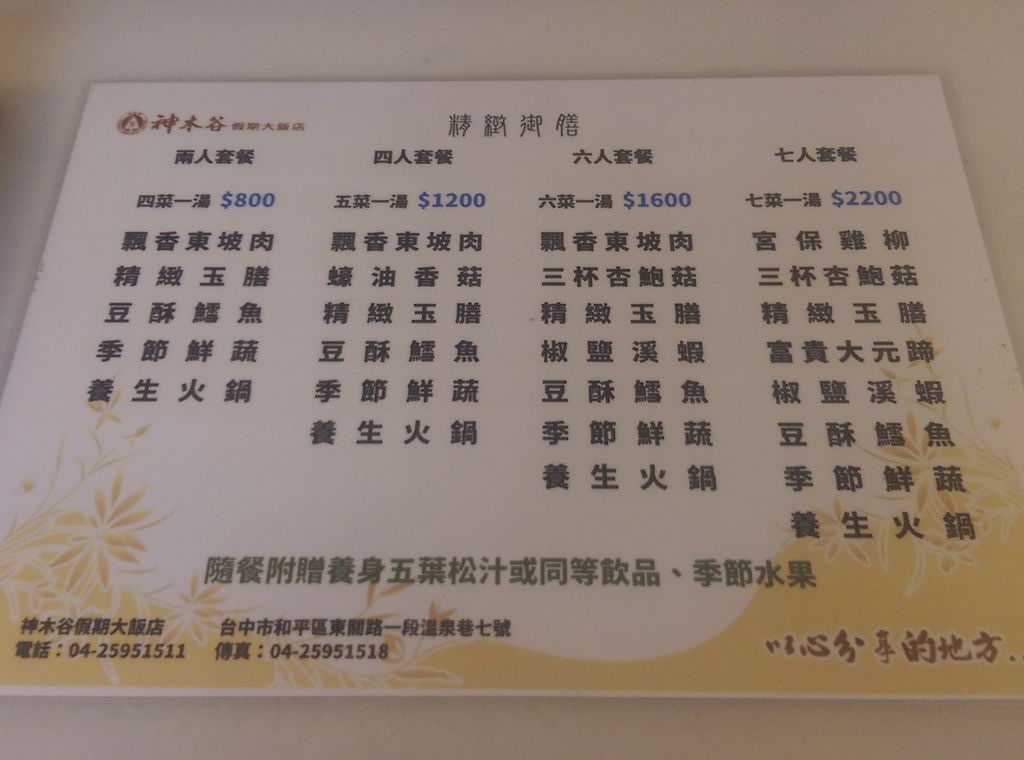 神木谷 假期大飯店
精緻御膳
兩人套餐
四菜一湯 $800
飄香東坡肉
精緻玉膳
豆酥鱈魚
季節鮮蔬
養生火鍋
四人套餐
五菜一湯 $1200
飄香東坡肉
蠔油香菇
精緻玉膳
豆酥鱈魚
季節鮮蔬
養生火鍋
六人套餐
六菜一湯 $1600
飄香東坡肉
三杯杏鮑菇
精緻玉膳
椒鹽溪蝦
豆酥鱈魚
季節鮮蔬
養生火鍋
七人套餐
七菜一湯 $2200
宮保雞柳
三杯杏鮑菇
精緻玉膳
富貴大元蹄
椒鹽溪蝦
豆酥鱈魚
季節鮮蔬
養生火鍋
隨餐附贈養身五葉松汁或同等飲品、季節水果
神木谷假期大飯店 台中市和平區東關路一段溫泉巷七號
電話：04-25951511 傳真：04-25951518
以心分享的地方...